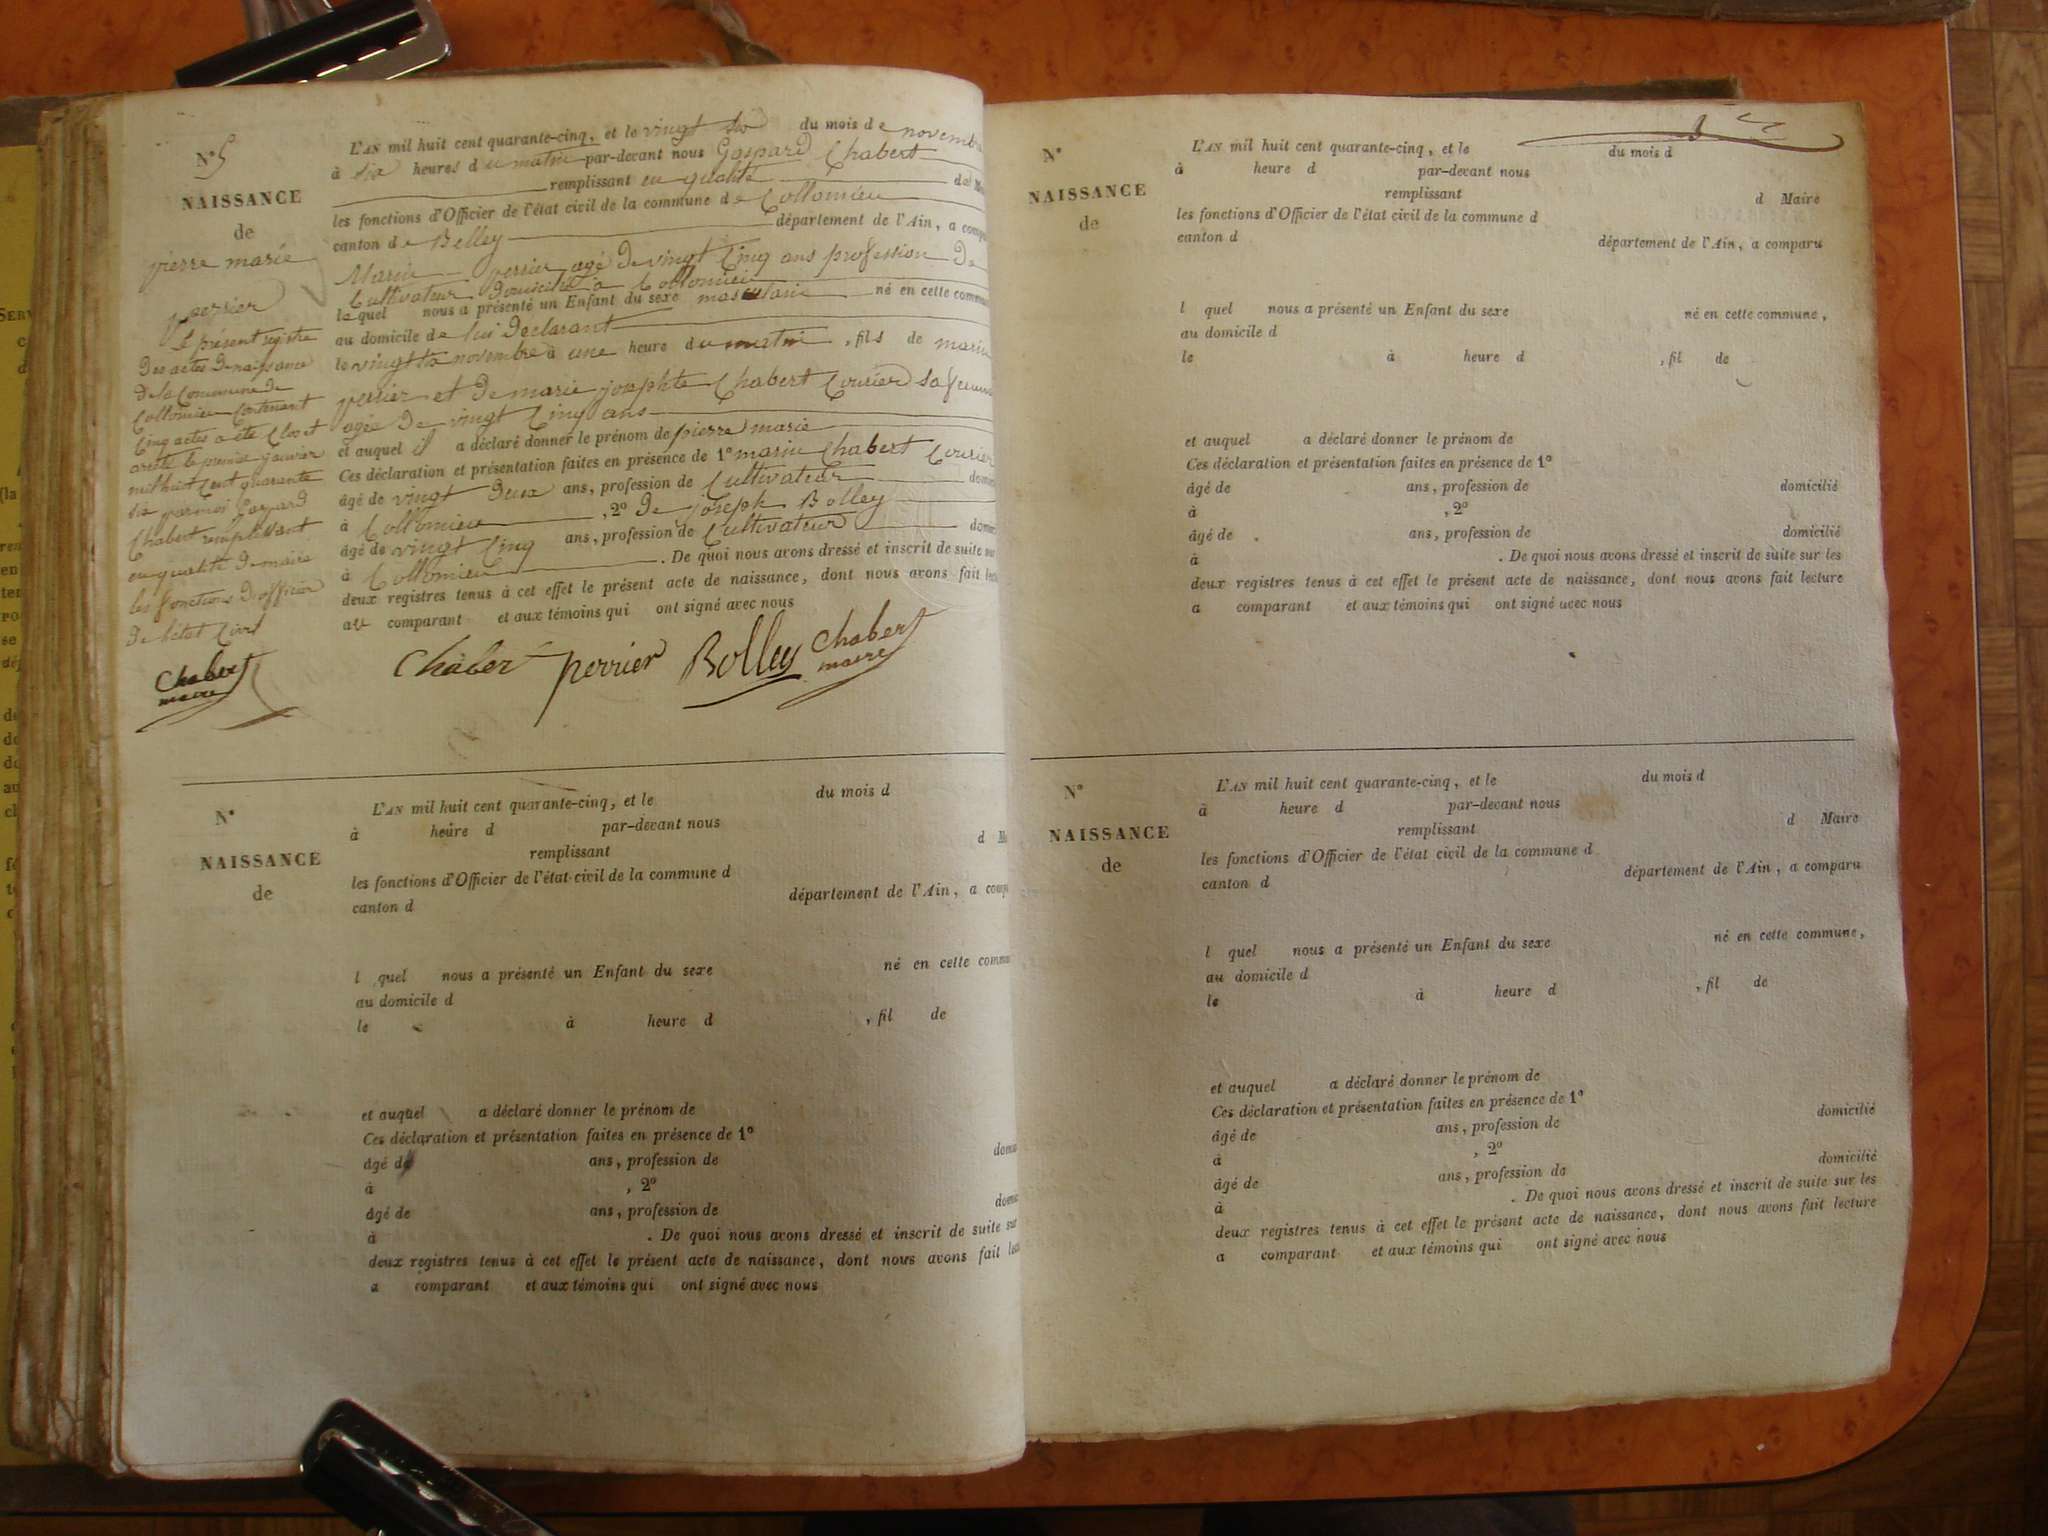 N° 5
NAISSANCE
de
pierre marie
perrier
Le présent registre
des actes de naissance
de la Commune de
Collomieu Contenant
Cinq actes a été Clos et
areté le premier janvier
mil huit Cent quarante
six par moi Gaspard
Chabert remplissant
en qualité de maire
les fonctions d'officier
de l'état Civil
Chabert
maire
L'AN mil huit cent quarante-cinq, et le vingt six du mois de novembre
à six heures du matin par-devant nous Gaspard Chabert
remplissant en qualité de
les fonctions d'Officier de l'état civil de la commune de Collomieu
canton de Belley département de l'Ain, a compa
Marin perrier agé de vingt Cinq ans profession de
Cultivateur domicilié à Collomieu
lequel nous a présenté un Enfant du sexe masculain né en cette commune
au domicile de lui déclarant
le vingt six novembre à une heure du matin, fils de marin
perrier et de marie josephte Chabert Courier sa femme
agée de vingt Cinq ans
et auquel il a déclaré donner le prénom de pierre marie
Ces déclaration et présentation faites en présence de 1° marin Chabert Courier
âgé de vingt deux ans, profession de Cultivateur domici
à Collomieu, 2° de joseph Bolley
âgé de vingt Cinq ans, profession de Cultivateur domici
à Collomieu. De quoi nous avons dressé et inscrit de suite sur
deux registres tenus à cet effet le présent acte de naissance, dont nous avons fait lect
au comparant et aux témoins qui ont signé avec nous
Chaber perrier Bolley Chabert
maire
N°
NAISSANCE
de
L'AN mil huit cent quarante-cinq, et le du mois d
à heure d par-devant nous
remplissant d M
les fonctions d'Officier de l'état civil de la commune d
canton d département de l'Ain, a comp
l quel nous a présenté un Enfant du sexe né en cette commu
au domicile d
le à heure d , fil de
et auquel a déclaré donner le prénom de
Ces déclaration et présentation faites en présence de 1°
âgé de ans, profession de domic
à , 2°
âgé de ans, profession de domic
à . De quoi nous avons dressé et inscrit de suite sur
deux registres tenus à cet effet le présent acte de naissance, dont nous avons fait lec
a comparant et aux témoins qui ont signé avec nous
N°
NAISSANCE
de
L'AN mil huit cent quarante-cinq, et le du mois d
à heure d par-devant nous
remplissant d Maire
les fonctions d'Officier de l'état civil de la commune d
canton d département de l'Ain, a comparu
l quel nous a présenté un Enfant du sexe né en cette commune,
au domicile d
le à heure d , fil de
et auquel a déclaré donner le prénom de
Ces déclaration et présentation faites en présence de 1°
âgé de ans, profession de domicilié
à , 2°
âgé de ans, profession de domicilié
à . De quoi nous avons dressé et inscrit de suite sur les
deux registres tenus à cet effet le présent acte de naissance, dont nous avons fait lecture
a comparant et aux témoins qui ont signé avec nous
N°
NAISSANCE
de
L'AN mil huit cent quarante-cinq, et le du mois d
à heure d par-devant nous
remplissant d Maire
les fonctions d'Officier de l'état civil de la commune d
canton d département de l'Ain, a comparu
l quel nous a présenté un Enfant du sexe né en cette commune,
au domicile d
le à heure d , fil de
et auquel a déclaré donner le prénom de
Ces déclaration et présentation faites en présence de 1°
âgé de ans, profession de domicilié
à , 2°
âgé de ans, profession de domicilié
à . De quoi nous avons dressé et inscrit de suite sur les
deux registres tenus à cet effet le présent acte de naissance, dont nous avons fait lecture
a comparant et aux témoins qui ont signé avec nous